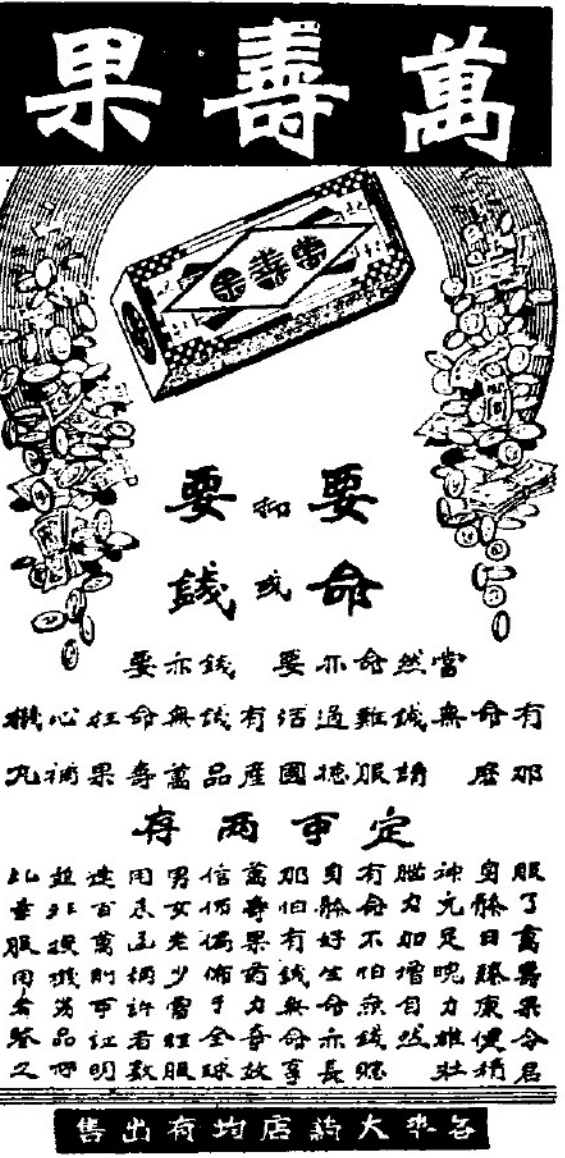 萬壽果
萬壽果
要命
抑或
要錢
當然命亦要 錢亦要
有命無錢難過活有錢無命枉心機
那麽 請服德國產品萬壽果補丸
定可两存
服了萬壽果令君
身體日臻康健精
神元足魄力雄壯
腦力加增自然
有命不怕無錢賺
身體好生命亦長
那怕有錢無命享
萬壽果葯力奇效
信仰徧佈于全球
男女老少需經服
用表函稱許者數
達百萬則可証明
並非投機品可
比幸服用者鑒之
各埠大葯店均有出售